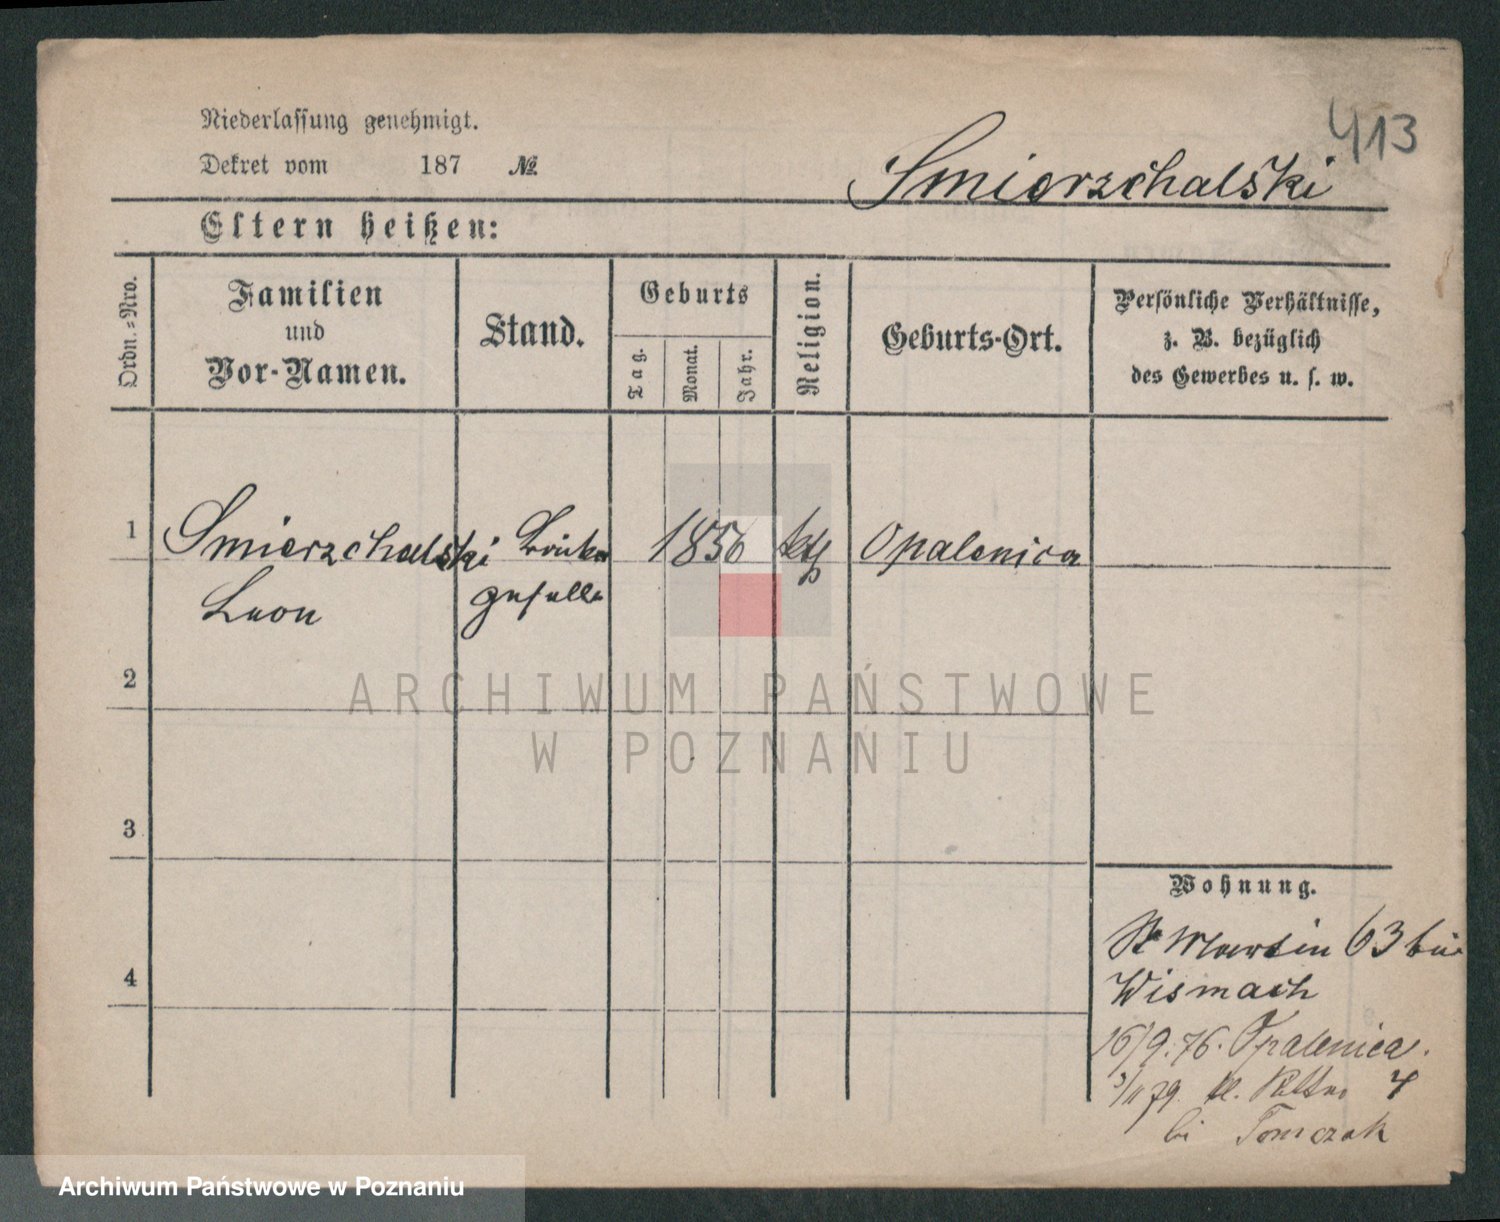 413
Niederlassung genehmigt.
Dekret vom 187 №
Smierzchalski
Eltern heißen:
Ordn.=Nro.
Familien
und
Vor-Namen.
Stand.
Geburts
Tag.
Monat.
Jahr.
Religion.
Geburts-Ort.
Persönliche Verhältnisse,
z. B. bezüglich
des Gewerbes u. s. w.
1
Smierzchalski
Leon
geselle
1856
kth
Opalenica
2
3
4
Wohnung.
St Martin 63 bei
Wismach
16/9.76. Opalenica.
3/11 79. kl. 4
bei Tomczak
ARCHIWUM PAŃSTWOWE
W POZNANIU
Archiwum Państwowe w Poznaniu